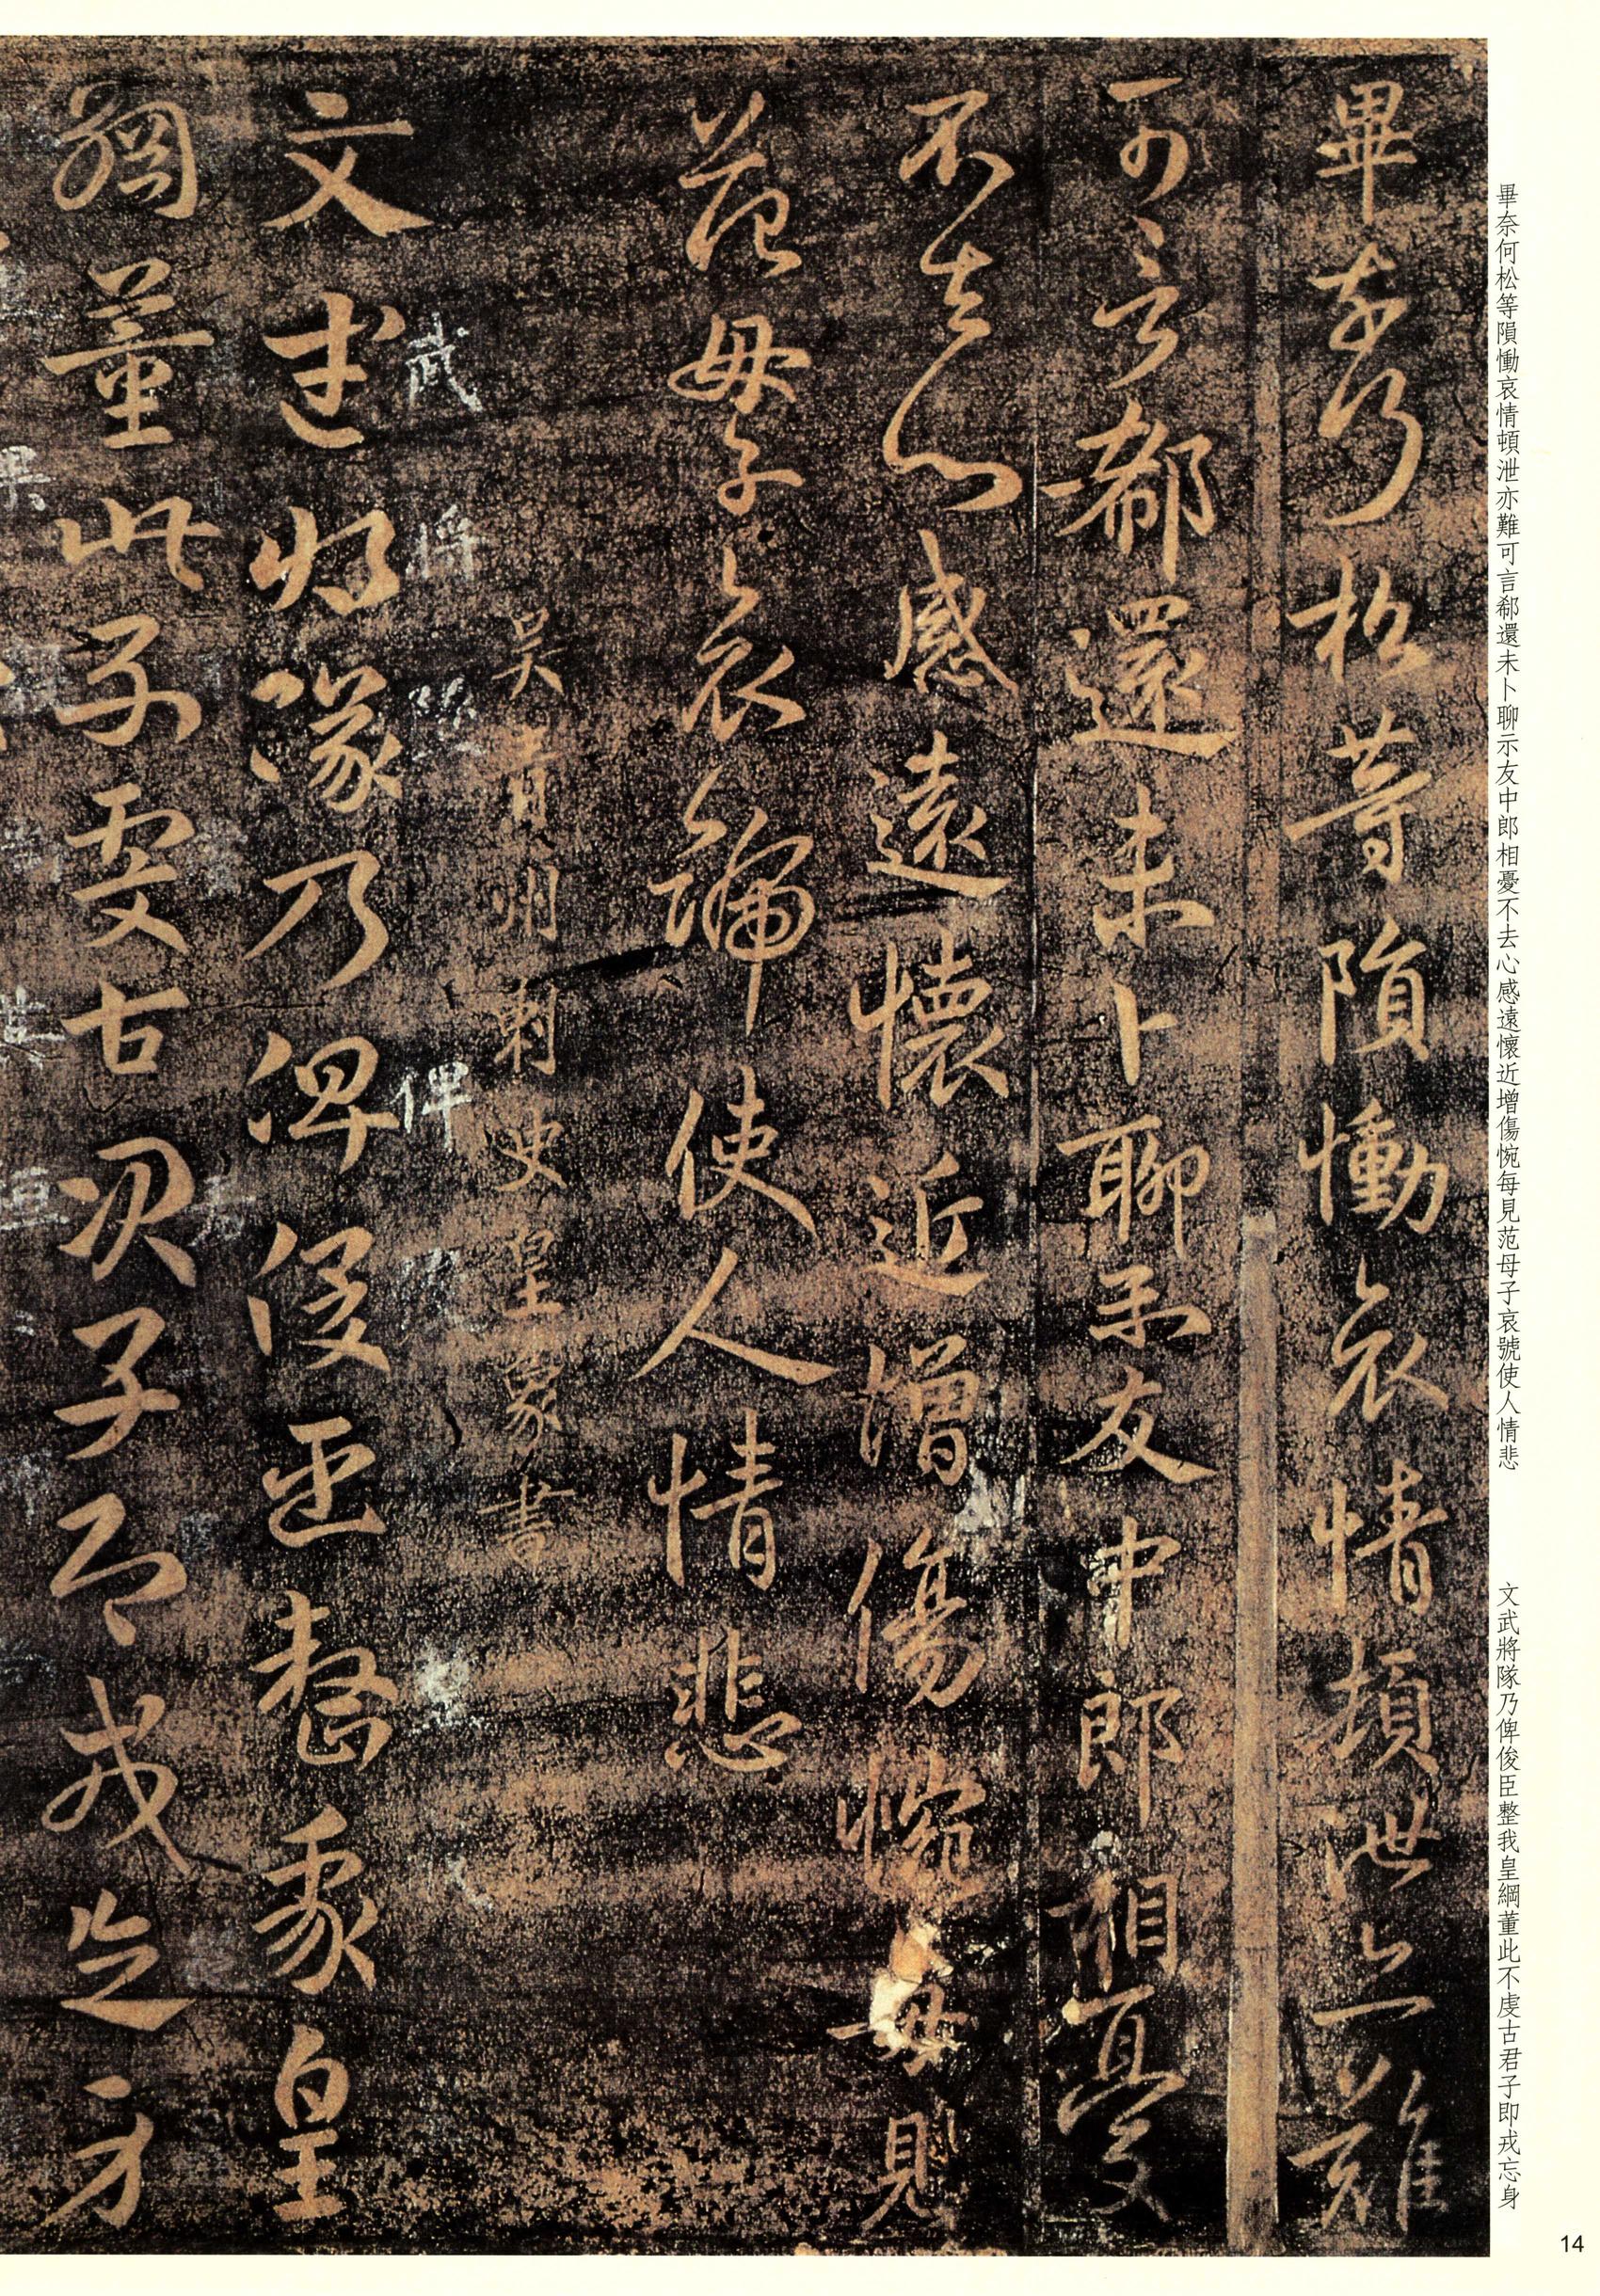 畢奈何松等隕慟哀情頓泄亦難可言郗還未卜聊示友中郎相憂不去心感遠懷近增傷惋每見范母子哀號使人情悲
文武將隊乃俾俊臣整我皇綱董此不虔古君子即戎忘身
畢奈何松等隕慟哀情頓泄亦難
可言郗還未卜聊示友中郎相憂
不去心感遠懷近增傷惋每見
范母子哀號使人情悲
吳青州刺史皇象書
武將 俾
文武將隊乃俾俊臣整我皇
綱董此不虔古君子即戎忘身
14